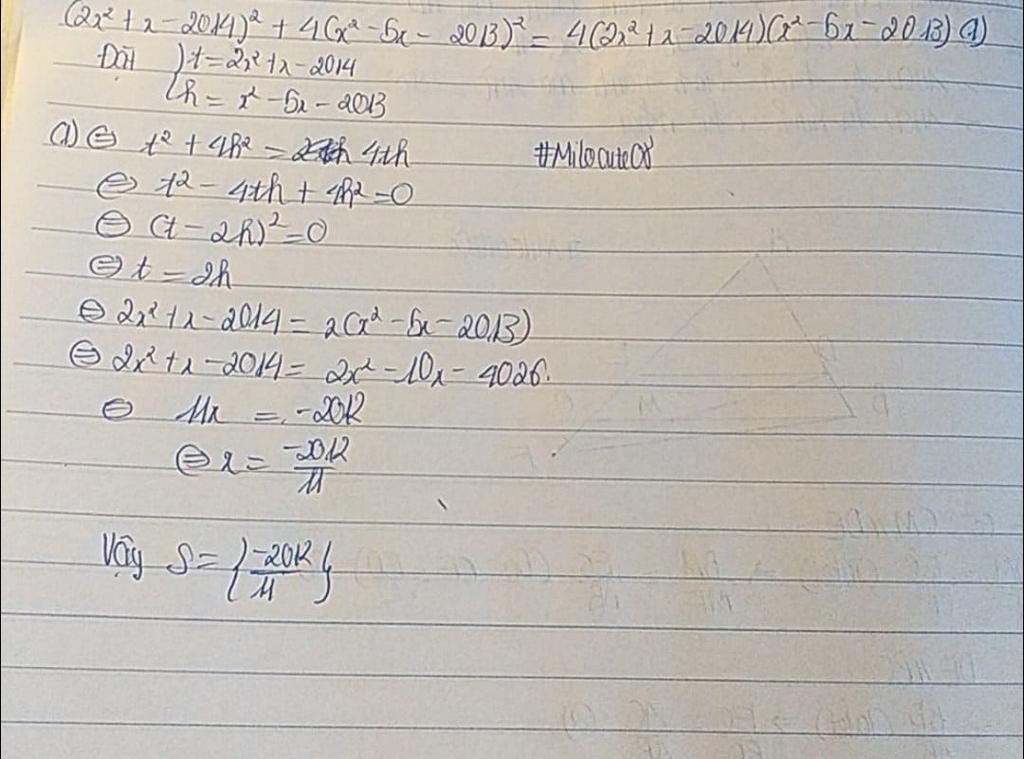 (2x² + x - 2014)² + 4(x² - 5x - 2013)² = 4(2x² + x - 2014)(x² - 5x - 2013) (1)
Đặt { t = 2x² + x - 2014
{ h = x² - 5x - 2013
(1) ⇔ t² + 4h² = 4th #Milocute08
⇔ t² - 4th + 4h² = 0
⇔ (t - 2h)² = 0
⇔ t = 2h
⇔ 2x² + x - 2014 = 2(x² - 5x - 2013)
⇔ 2x² + x - 2014 = 2x² - 10x - 4026.
⇔ 11x = -2012
⇔ x = -2012/11
Vậy S = {-2012/11}